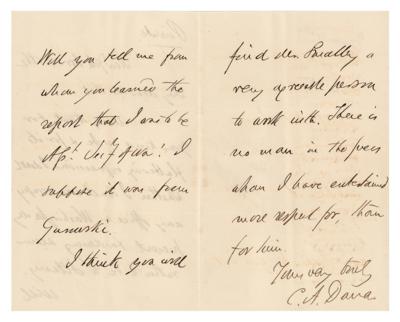 Will you tell me from
whom you learned the
report that I am to be
Asst. Secy of War? I
suppose it was from
Gurowski.
I think you will
find Mr. Smalley a
very agreeable person
to work with. There is
no man in the press
whom I have entertained
more respect for, than
for him.
Yours very truly
C. A. Dana